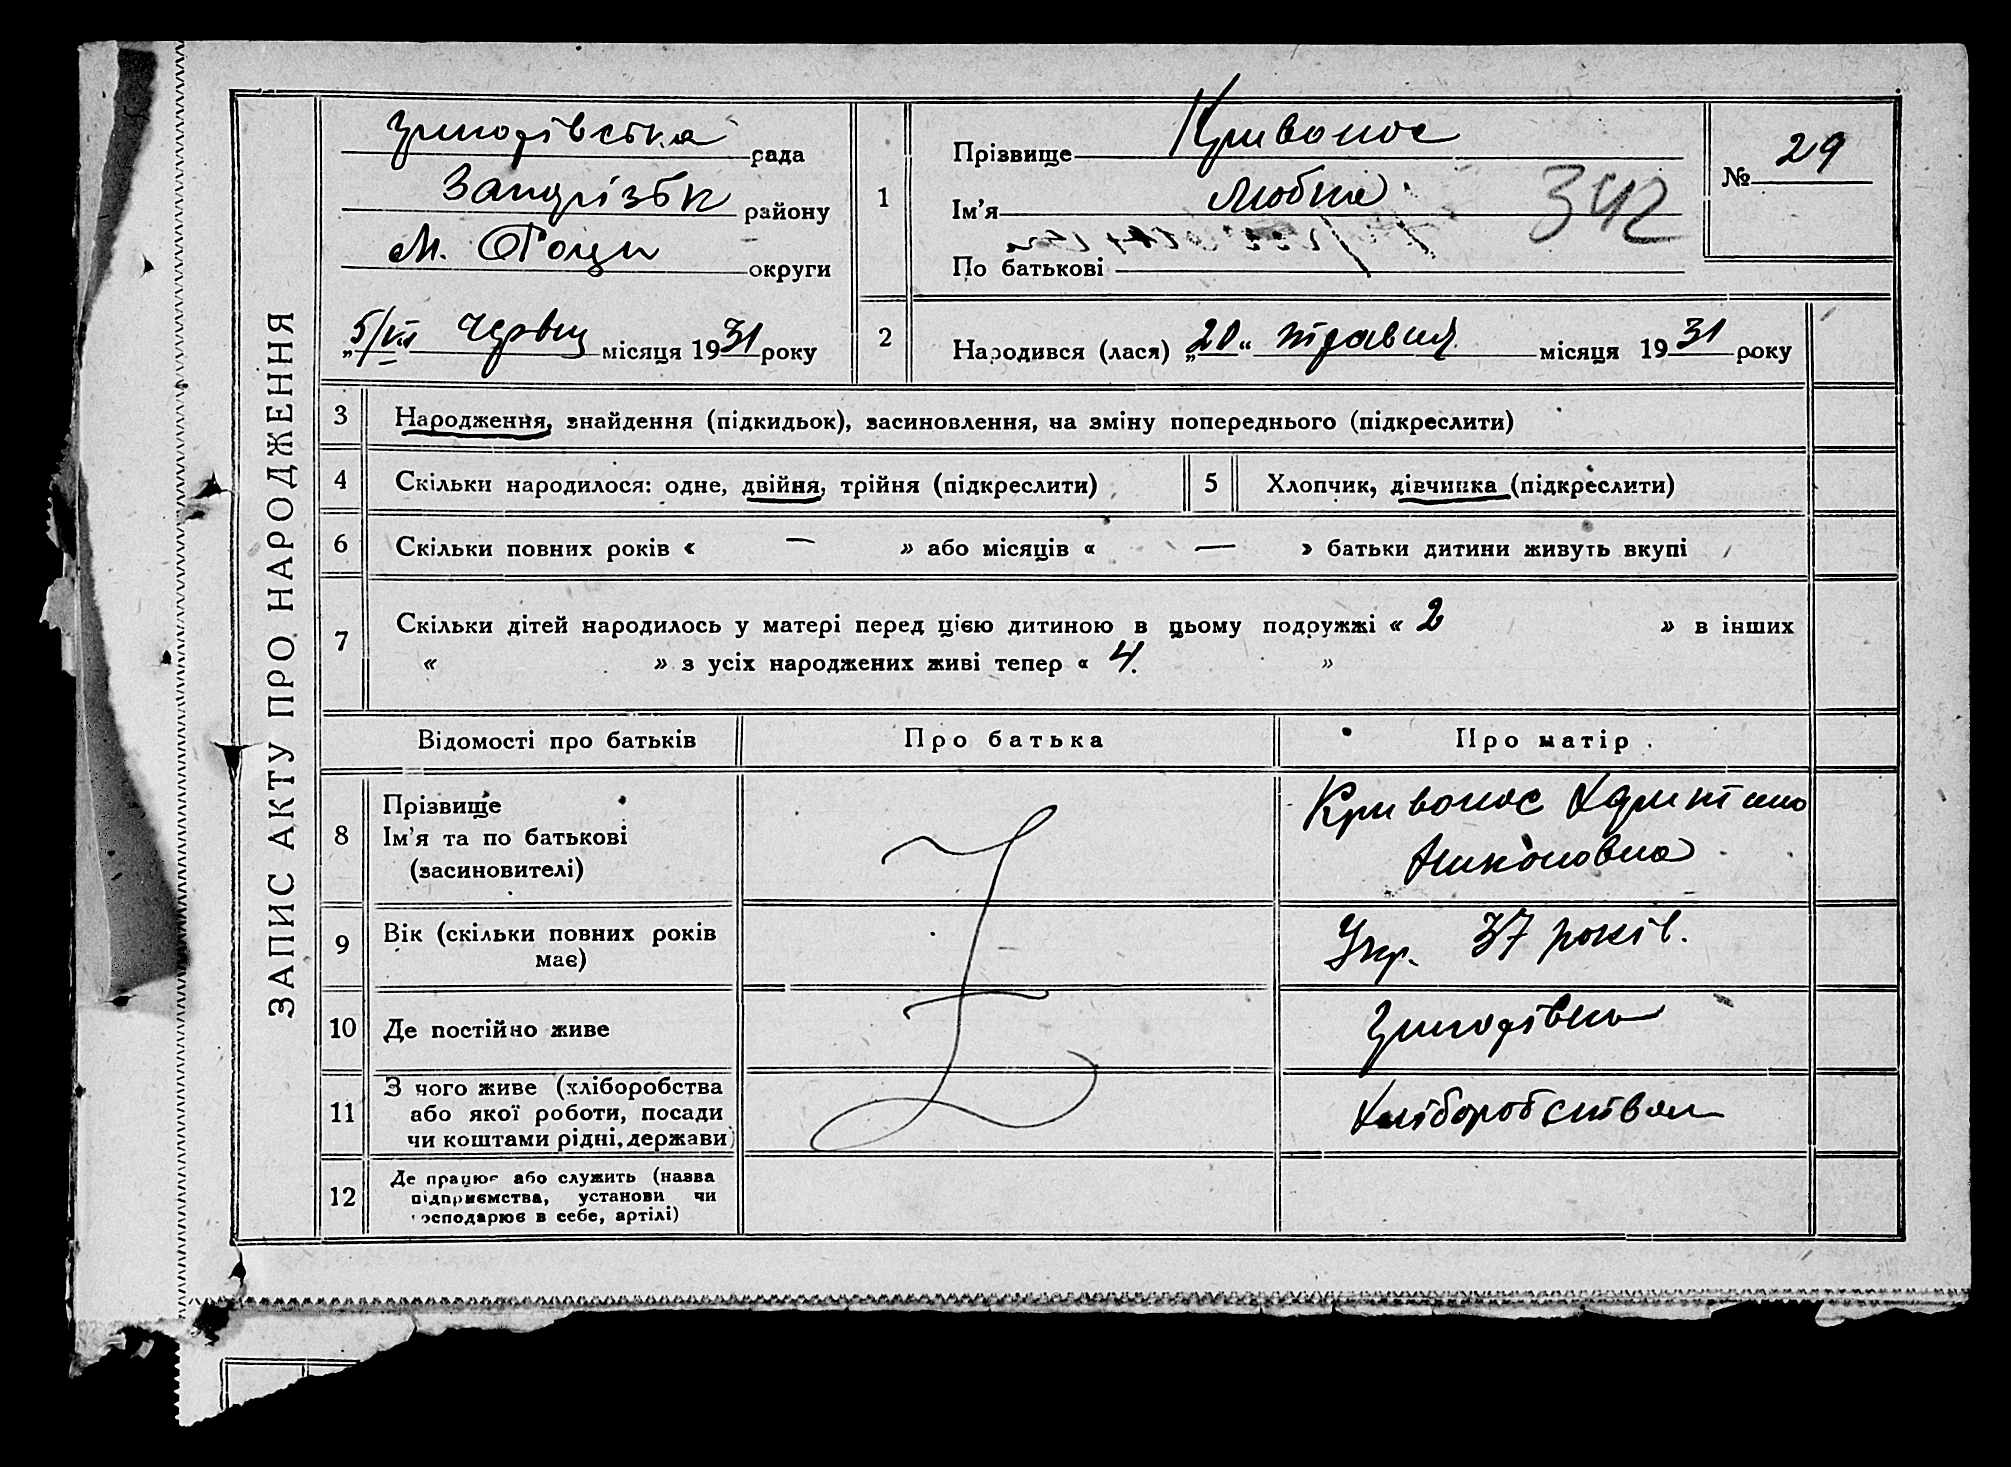 ЗАПИС АКТУ ПРО НАРОДЖЕННЯ
рада
району
округи
„5/VI Червц місяця 1931 року
1
Прізвище Кривонос
Ім'я Любка
342
По батькові
№ 29
2
Народився (лася) „20“ травня місяця 1931 року
3 Народження, знайдення (підкидьок), засиновлення, на зміну попереднього (підкреслити)
4 Скільки народилося: одне, двійня, трійня (підкреслити)
5 Хлопчик, дівчинка (підкреслити)
6 Скільки повних років « — » або місяців « — » батьки дитини живуть вкупі
7 Скільки дітей народилось у матері перед цією дитиною в цьому подружжі « 2 » в інших
« » з усіх народжених живі тепер « 4. »
Відомості про батьків
Про батька
Про матір
8 Прізвище
Ім'я та по батькові
(засиновителі)
Кривонос
Никоновна
9 Вік (скільки повних років
має)
Укр. 37 років.
10 Де постійно живе
11 З чого живе (хліборобства
або якої роботи, посади
чи коштами рідні, держави)
Хліборобством
12 Де працює або служить (назва
підприємства, установи чи
господарює в себе, артілі)